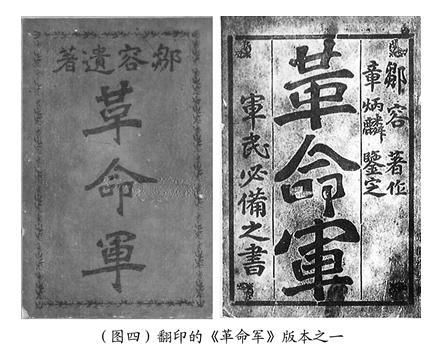 鄒容遺著
革命軍
鄒容著作
章炳麟鑒定
革命軍
軍民必備之書
（图四）翻印的《革命军》版本之一